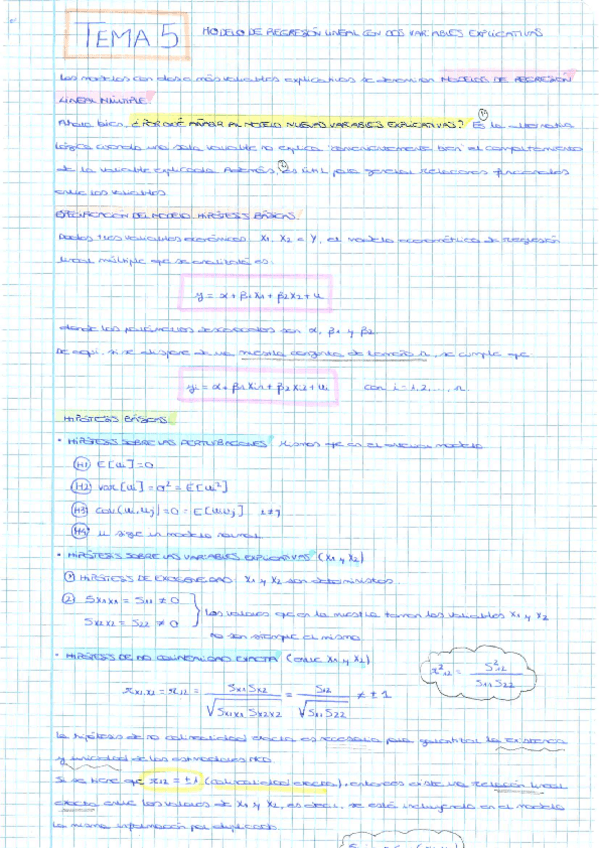 TEMA 5 MODELO DE REGRESIÓN LINEAL CON DOS VARIABLES EXPLICATIVAS
Los modelos con dos o más variables explicativas se denominan MODELOS DE REGRESIÓN
LINEAL MÚLTIPLE.
Ahora bien, ¿POR QUÉ AÑADIR AL MODELO NUEVAS VARIABLES EXPLICATIVAS? ① Es la alternativa
lógica cuando una sola variable no explica convenientemente bien el comportamiento
de la variable explicada. Además, ② es útil para generar relaciones funcionales
entre las variables.
ESPECIFICACIÓN DEL MODELO. HIPÓTESIS BÁSICAS.
Dadas tres variables económicas X1, X2 e Y, el modelo econométrico de regresión
lineal múltiple que se analizará es:
y = α + β1 X1 + β2 X2 + u
donde los parámetros desconocidos son α, β1 y β2.
De aquí, si se dispone de una muestra conjunta de tamaño n, se cumple que
yi = α + β1 Xi1 + β2 Xi2 + ui con i = 1,2,..., n.
HIPÓTESIS BÁSICAS
· HIPÓTESIS SOBRE LAS PERTURBACIONES que en el modelo
(H1) E[ui] = 0
(H2) var[ui] = σ² = E[ui²]
(H3) cov(ui, uj) = 0 = E[ui uj] i≠j
(H4) u sigue un modelo normal
· HIPÓTESIS SOBRE LAS VARIABLES EXPLICATIVAS (X1 y X2)
① HIPÓTESIS DE EXOGENEIDAD: X1 y X2 son deterministas.
② Sx1x1 = S11 ≠ 0
Sx2x2 = S22 ≠ 0
Los valores que en la muestra toman las variables X1 y X2
no son siempre el mismo
· HIPÓTESIS DE NO COLINEALIDAD EXACTA (entre X1 y X2)
r²12 = S²12 / S11 S22
rx1,x2 = r12 = Sx1x2 / √Sx1x1 Sx2x2 = S12 / √S11 S22 ≠ ±1
La hipótesis de no colinealidad exacta es necesaria para garantizar la existencia
y unicidad de los estimadores MCO.
Si se tiene que r12 = ±1 (colinealidad exacta), entonces existe una relación lineal
exacta entre los valores de X1 y X2, es decir, se está incluyendo en el modelo
la misma información por duplicado.